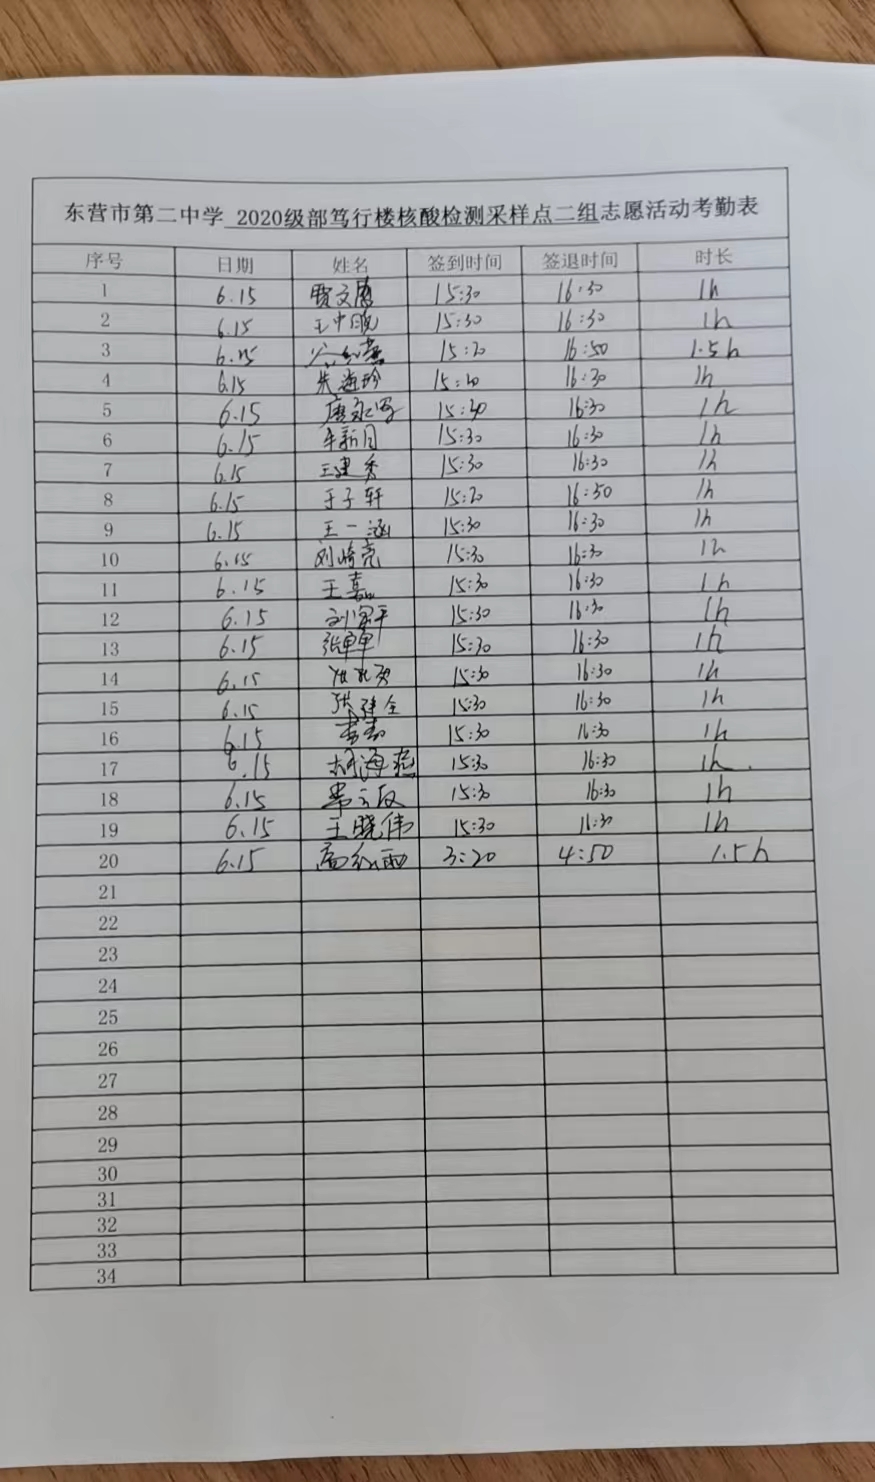 东营市第二中学 2020级部笃行楼核酸检测采样点二组志愿活动考勤表
序号 日期 姓名 签到时间 签退时间 时长
1 6.15 15:30 16:30 1h
2 6.15 15:30 16:30 1h
3 6.15 15:20 16:50 1.5h
4 6.15 16:30 1h
5 6.15 16:30 1h
6 6.15 15:30 16:30 1h
7 6.15 王建秀 15:30 16:30 1h
8 6.15 于子轩 15:20 16:50 1h
9 6.15 王一涵 15:30 16:30 1h
10 6.15 15:30 16:30 1h
11 6.15 王嘉 15:30 16:30 1h
12 6.15 15:30 16:30 1h
13 6.15 15:30 16:30 1h
14 6.15 15:30 16:30 1h
15 6.15 张建全 15:30 16:30 1h
16 6.15 15:30 16:30 1h
17 6.15 15:30 16:30 1h.
18 6.15 15:30 16:30 1h
19 6.15 王晓伟 15:30 16:30 1h
20 6.15 3:20 4:50 1.5h
21
22
23
24
25
26
27
28
29
30
31
32
33
34